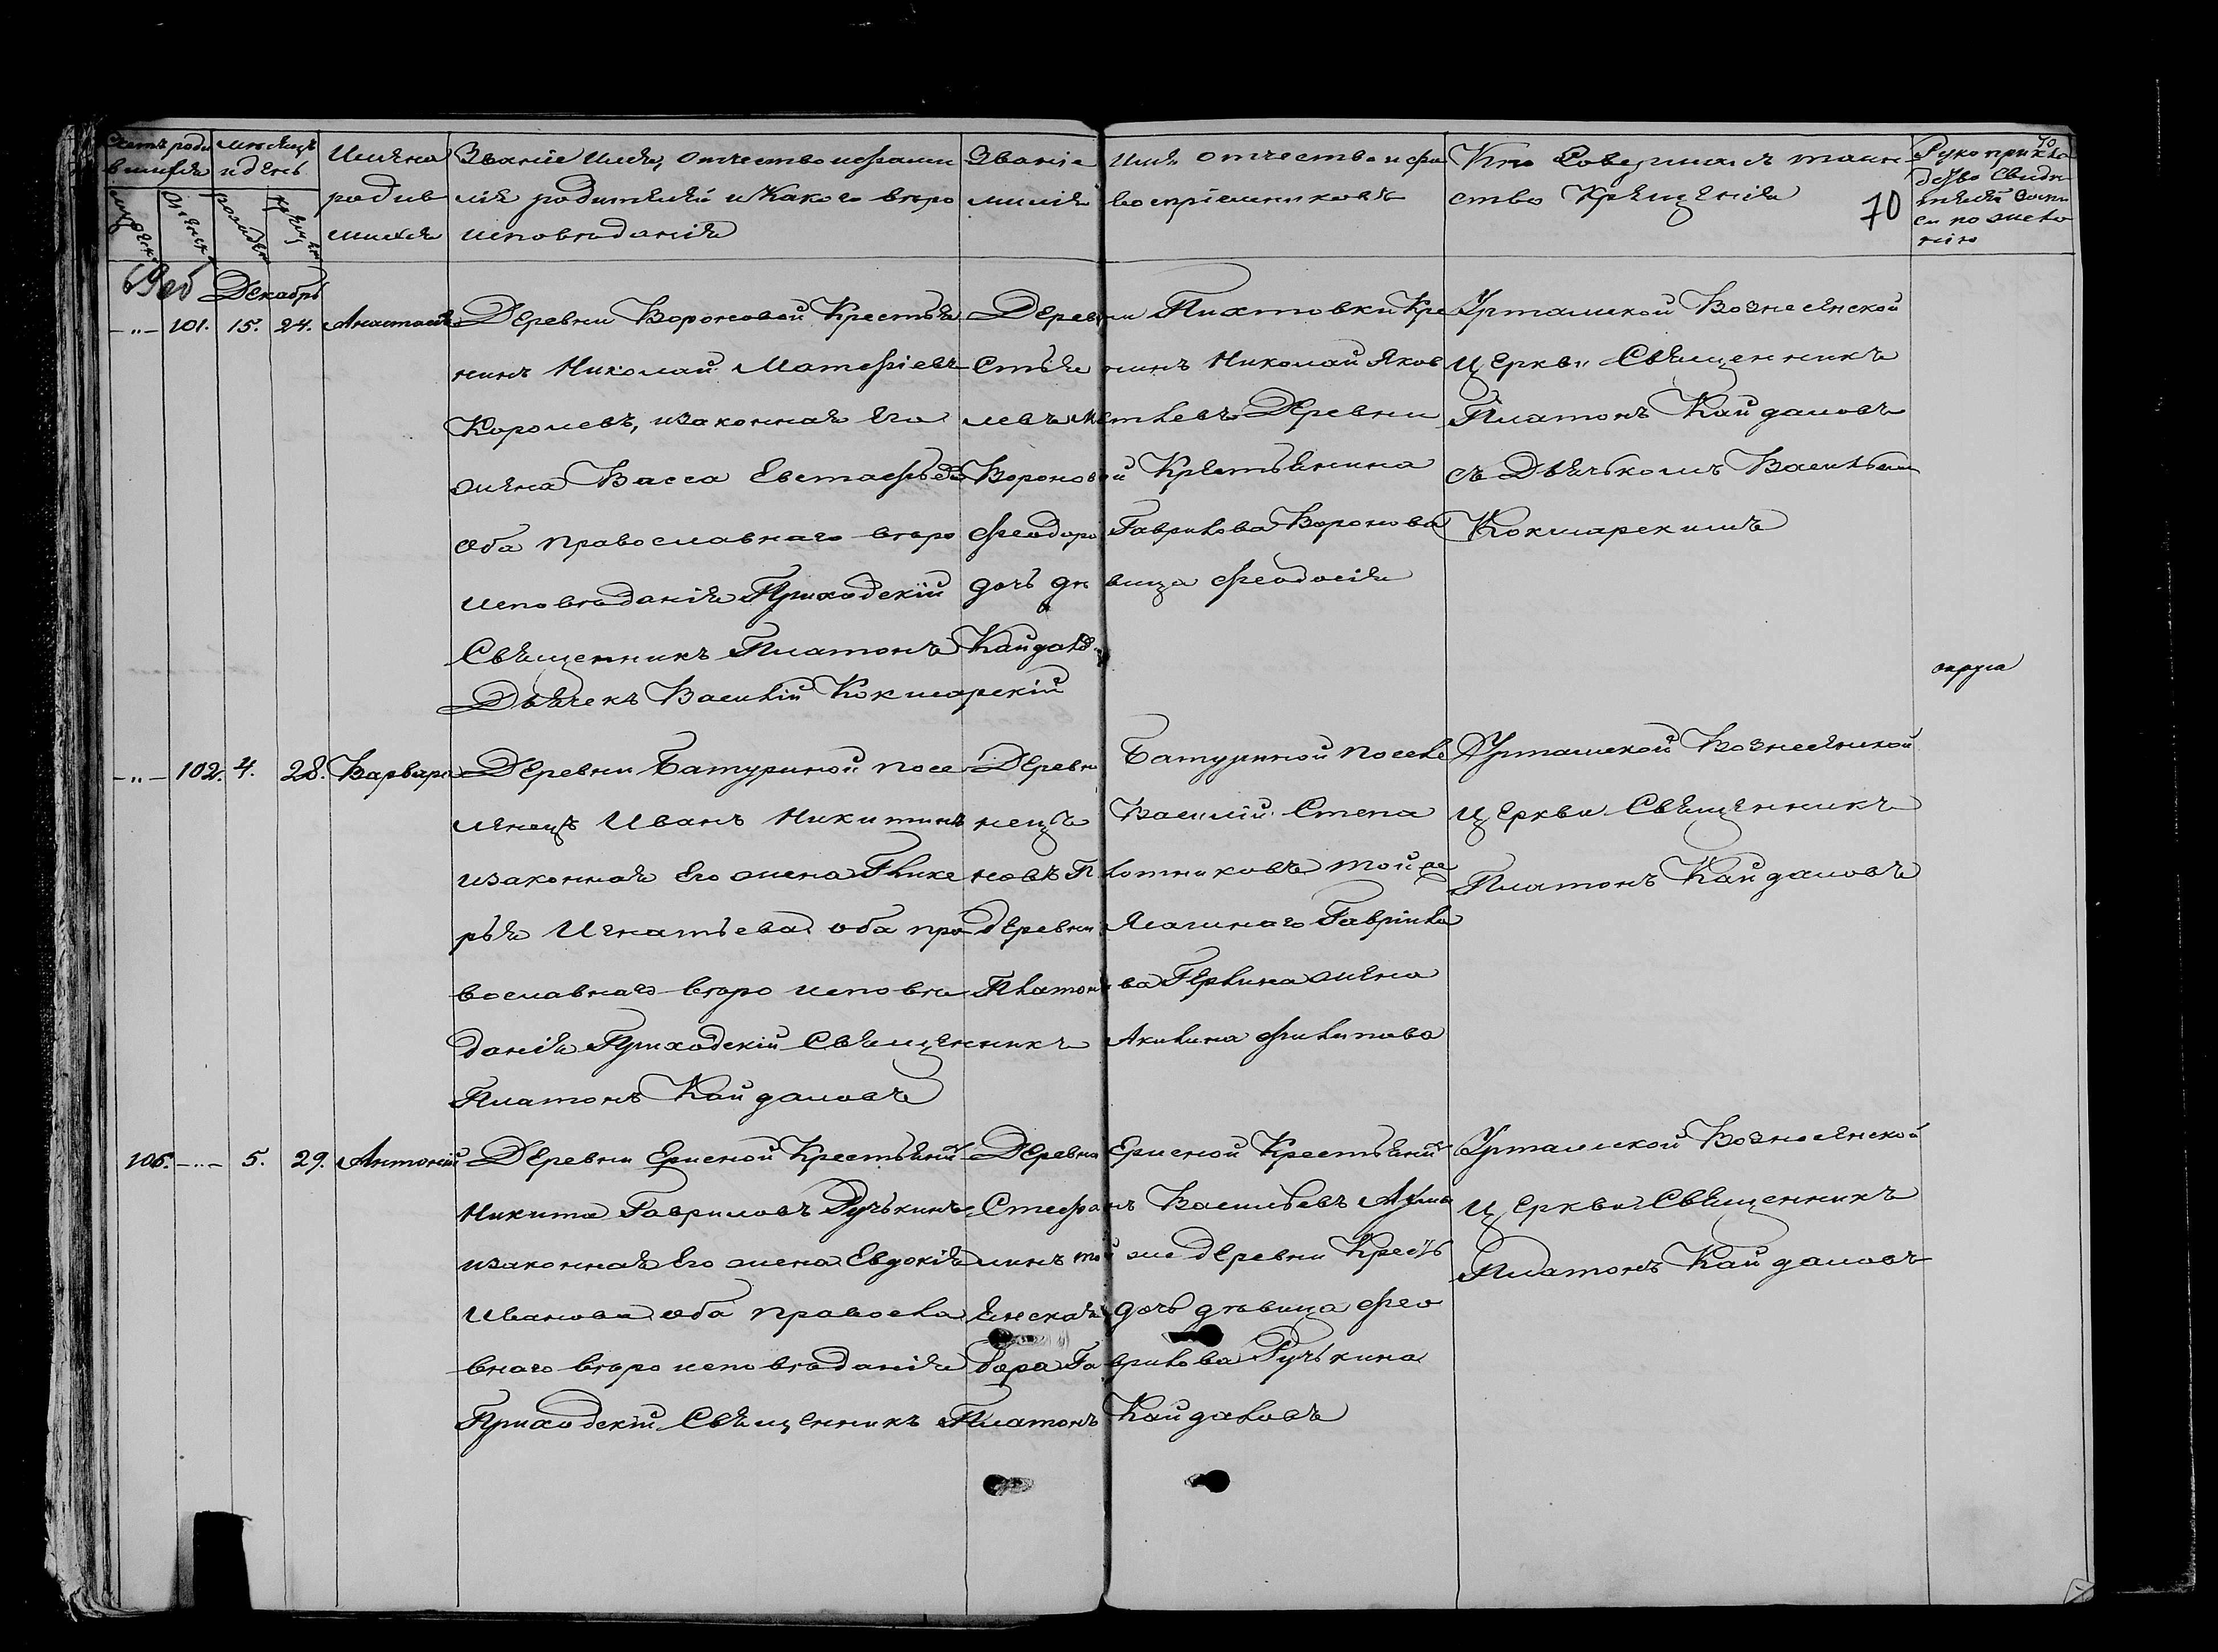 Счетъ роди
вшихся
мужеск.
женск.
мѣсяцъ
и день
рожден.
крещен.
Имена
родив
шихся
Званіе имя, отчество и фами
лія родителей и Какого вѣро
исповѣданія
Званіе имя отчество и фа
милія воспріемниковъ
Кто Совершалъ таин
ство Крещенія
70
70
Рукоприкла
дство Свиде
телей
по жела
нію
Декабрь
-"- 101. 15. 24.
Деревни Вороновой Крестья
нинъ Николай Матфіевъ
Королевъ, изаконная Его
жена Васса Евстафьева
оба православнаго вѣро
исповѣданія Приходскій
Священникъ Платонъ Кайдаловъ
Дьячекъ Василій Кокшарскій
Деревни Пихтовки Кре
Стья нинъ Николай Яков
левъ Деревни
Вороновой Крестьянина
Феодора Гаврилова Воронова
дочь дѣвица Феодосія
Урташской Вознесенской
Церкви Священникъ
Платонъ Кайдаловъ
съ Дьячькомъ Васильемъ
Кокшарскимъ
округа
-"- 102. 4. 28. Варвара
Деревни Батуриной посе
ленецъ Иванъ Никитинъ
изаконная Его жена Глике
рья Игнатьева оба пра
вославнаго вѣро исповѣ
данія Приходскій Священникъ
Платонъ Кайдаловъ
Деревни Батуриной поселе
нецъ Василій Степа
новъ Плотниковъ той же
деревни Гаврила
Платонова жена
Акилина Филипова
Урташской Вознесенской
Церкви Священникъ
Платонъ Кайдаловъ
106. -"- 5. 29. Антоній
Деревни Ерской Крестьянинъ
Никита Гавриловъ Ручькинъ
изаконная Его жена Евдокія
Иванова оба правосла
внаго вѣро исповѣданія
Приходскій Священникъ Платонъ Кайдаловъ
Деревни Ерской Крестьянинъ
Стефанъ Васильевъ
линъ той же деревни Кресть
янская дочь дѣвица Фео
дора Гаврилова Ручькина
Урташской Вознесенской
Церкви Священникъ
Платонъ Кайдаловъ